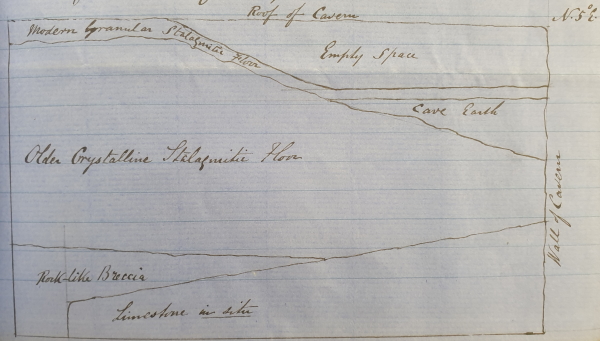 Roof of Cavern
N. 5° E.
Modern Granular Stalagmitic Floor
Empty Space
Cave Earth
Older Crystalline Stalagmitic Floor
Wall of Cavern
Rock-like Breccia
Limestone in situ